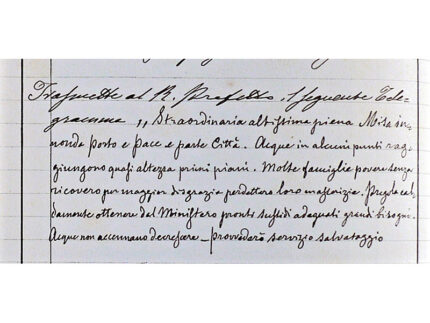 Trasmette al R. Prefetto, il seguente Tele-
gramma „ Straordinaria altissima piena Misa in-
nonda Porto e Pace e parte Città. Acque in alcuni punti rag-
giungono quasi altezza primi piani. Molte famiglie povere senza
ricovero per maggior disgrazia perdettero loro masserizie. Prego cal-
damente ottenere dal Ministero pronti sussidi adeguati grandi bisogni.
Acque non accennano decrescere _ Provvederò servizio salvataggio